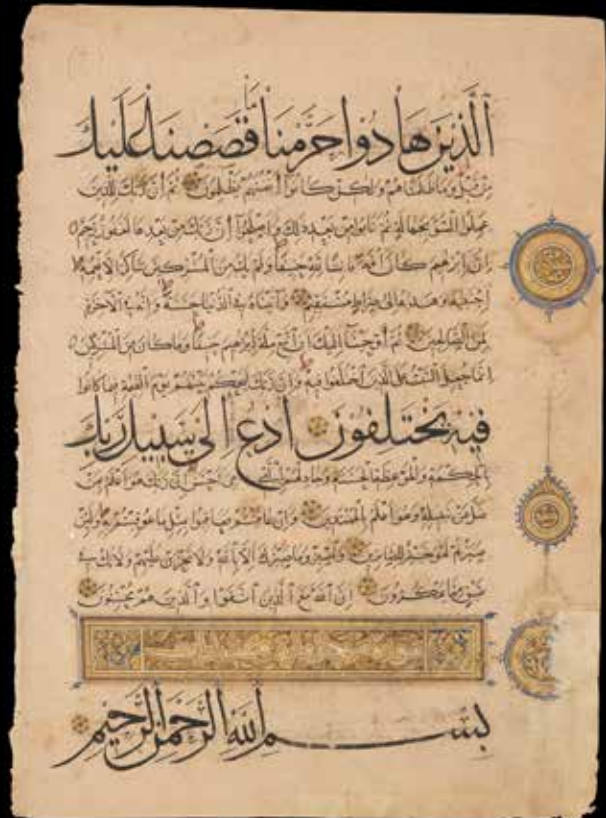 الذين هادوا حرمنا ما قصصنا عليك
من قبل وما ظلمناهم ولكن كانوا أنفسهم يظلمون ثم إن ربك للذين
عملوا السوء بجهالة ثم تابوا من بعد ذلك وأصلحوا إن ربك من بعدها لغفور رحيم
إن إبرهيم كان أمة قانتا لله حنيفا ولم يك من المشركين شاكرا لأنعمه
اجتباه وهداه إلى صراط مستقيم وآتيناه في الدنيا حسنة وإنه في الآخرة
لمن الصالحين ثم أوحينا إليك أن اتبع ملة إبرهيم حنيفا وما كان من المشركين
إنما جعل السبت على الذين اختلفوا فيه وإن ربك ليحكم بينهم يوم القيمة فيما كانوا
فيه يختلفون ادع إلى سبيل ربك
بالحكمة والموعظة الحسنة وجادلهم بالتي هي أحسن إن ربك هو أعلم بمن
ضل عن سبيله وهو أعلم بالمهتدين وإن عاقبتم فعاقبوا بمثل ما عوقبتم به ولئن
صبرتم لهو خير للصابرين واصبر وما صبرك إلا بالله ولا تحزن عليهم ولا تك في
ضيق مما يمكرون إن الله مع الذين اتقوا والذين هم محسنون
بسم الله الرحمن الرحيم